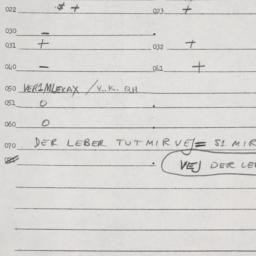 022 * + 023 +
030 —
031 + 032 +
040 — 041 +
050 VER1MLEKAX / V.K. QH
051 0
060 0
070 DER LEBER TUT MIR VEJ = S1 MIR
VEJ DER LEB